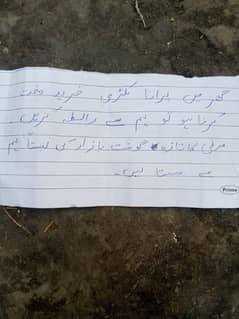 گھر میں پرانا لکڑی خرید فروخت
کرنا ہو تو ہم سے رابطہ کریں۔
مرغی کا تازہ گوشت بازار سے سستا ہم
سے لیں۔
Prime